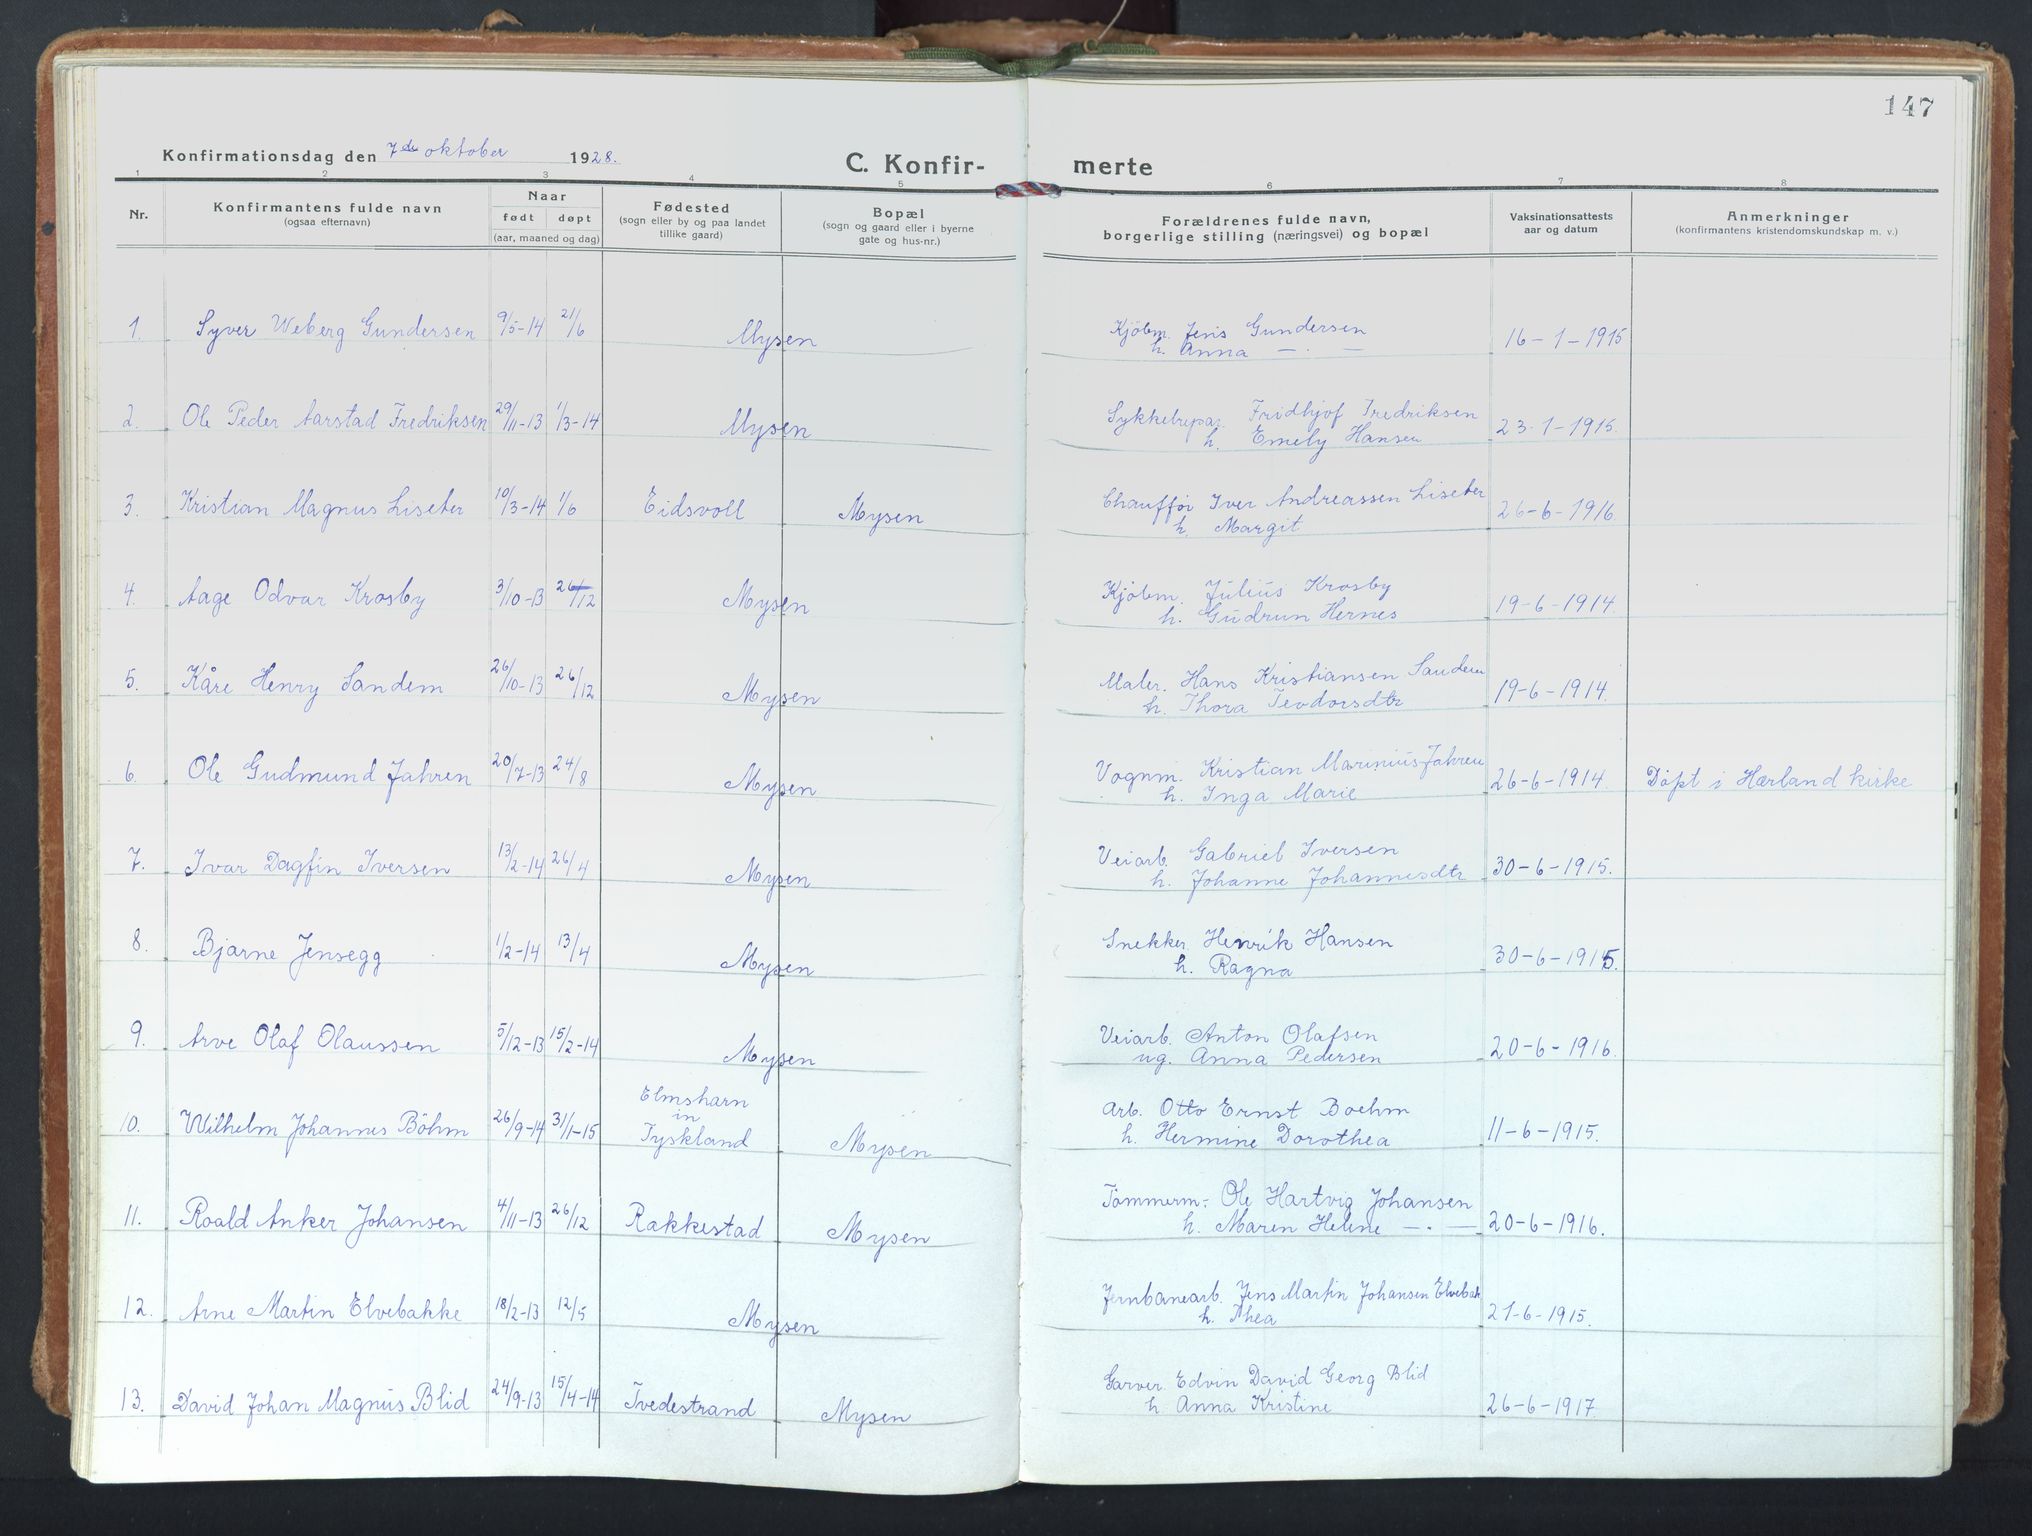 147
Konfirmationsdag den 7de oktober 1928.
C. Konfir- merte
1 2 3 4 5 6 7 8
Nr.
Konfirmantens fulde navn
(ogsaa efternavn)
Naar
født døpt
(aar, maaned og dag)
Fødested
(sogn eller by og paa landet
tillike gaard)
Bopæl
(sogn og gaard eller i byerne
gate og hus-nr.)
Forældrenes fulde navn,
borgerlige stilling (næringsvei) og bopæl
Vaksinationsattests
aar og datum
Anmerkninger
(konfirmantens kristendomskundskap m. v.)
1. Syver Weberg Gundersen 9/5-14 21/6 Mysen Kjöbm. Jens Gundersen 16-1-1915
h. Anna — . —
2. Ole Peder Aarstad Fredriksen 29/11-13 1/3-14 Mysen Sykkelrepar. Fridhjof Fredriksen 23-1-1915.
h. Emely Hansen
3. Kristian Magnus Liseter 10/3-14 1/6 Eidsvoll Mysen Chauffør Iver Andreassen Liseter 26-6-1916.
h. Margit
4. Aage Odvar Krosby 3/10-13 26/12 Mysen Kjöbm. Julius Krosby 19-6-1914.
h. Gudrun Hernes
5. Kåre Henry Sandem 26/10-13 26/12 Mysen Maler. Hans Kristiansen Sandem 19-6-1914.
h. Thora Teodorsdtr
6. Ole Gudmund Jahren 20/7-13 24/8 Mysen Vognm. Kristian Marinius Jahren 26-6-1914. Döpt i Hærland kirke
h. Inga Marie
7. Ivar Dagfin Iversen 13/2-14 26/4 Mysen Veiarb. Gabriel Iversen 30-6-1915.
h. Johanne Johannesdtr
8. Bjarne Jensegg 1/2-14 13/4 Mysen Snekker. Henrik Hansen 30-6-1915.
h. Ragna
9. Arve Olaf Olaussen 5/12-13 15/2-14 Mysen Veiarb. Anton Olafsen 20-6-1916.
ug. Anna Pedersen
10. Wilhelm Johannes Böhm 26/9-14 31/1-15 Elmsharn
in
Tyskland Mysen Arb. Otto Ernst Boehm 11-6-1915.
h. Hermine Dorothea
11. Roald Anker Johansen 4/11-13 26/12 Rakkestad Mysen Tömmerm. Ole Hartvig Johansen 20-6-1916.
h. Maren Helene — . —
12. Arne Martin Elvebakke 18/2-13 12/5 Mysen Jernbanearb. Jens Martin Johansen Elvebak 21-6-1915.
h. Thea
13. David Johan Magnus Blid 24/9-13 15/4-14 Tvedestrand Mysen Garver. Edvin David Georg Blid 26-6-1917
h Anna Kristine